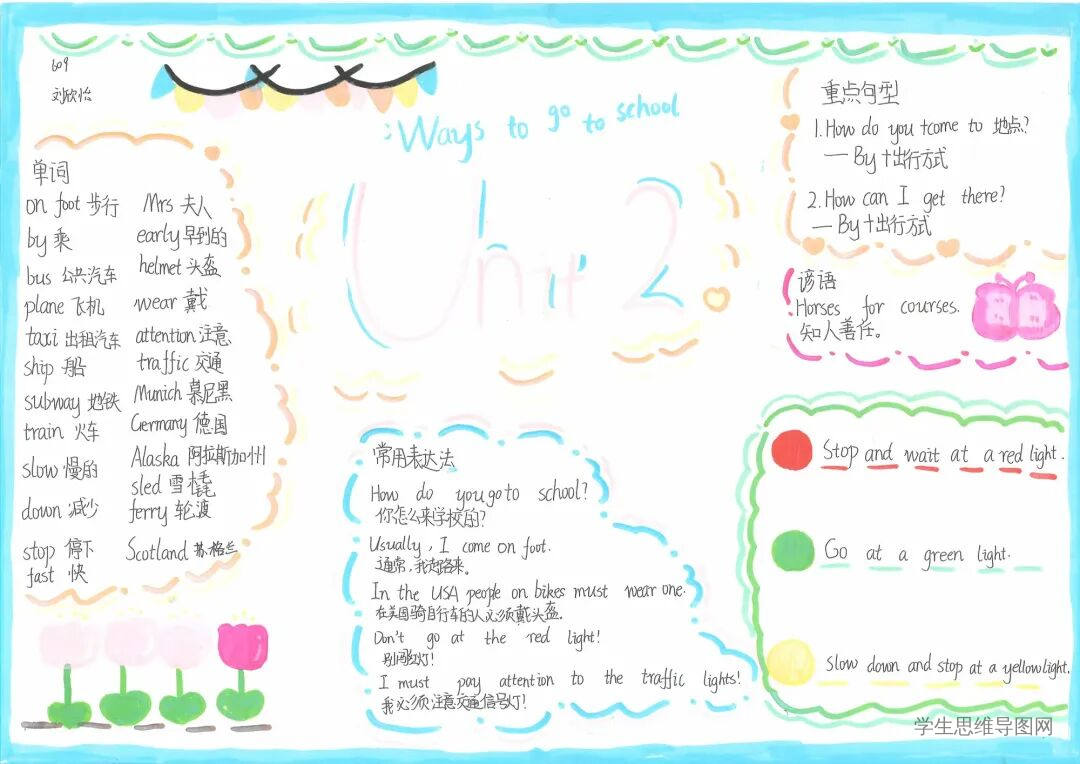 609
刘欣怡
Ways to go to school
Unit 2
单词
on foot 步行
by 乘
bus 公共汽车
plane 飞机
taxi 出租汽车
ship 船
subway 地铁
train 火车
slow 慢的
down 减少
stop 停下
fast 快
Mrs 夫人
early 早到的
helmet 头盔
wear 戴
attention 注意
traffic 交通
Munich 慕尼黑
Germany 德国
Alaska 阿拉斯加州
sled 雪橇
ferry 轮渡
Scotland 苏格兰
常用表达法
How do you go to school?
你怎么来学校的?
Usually, I come on foot.
通常,我走路来。
In the USA people on bikes must wear one.
在美国骑自行车的人必须戴头盔。
Don't go at the red light!
别闯红灯!
I must pay attention to the traffic lights!
我必须注意交通信号灯!
重点句型
1. How do you +come to 地点?
— By +出行方式
2. How can I get there?
— By +出行方式
谚语
Horses for courses.
知人善任。
Stop and wait at a red light.
Go at a green light.
Slow down and stop at a yellow light.
学生思维导图网